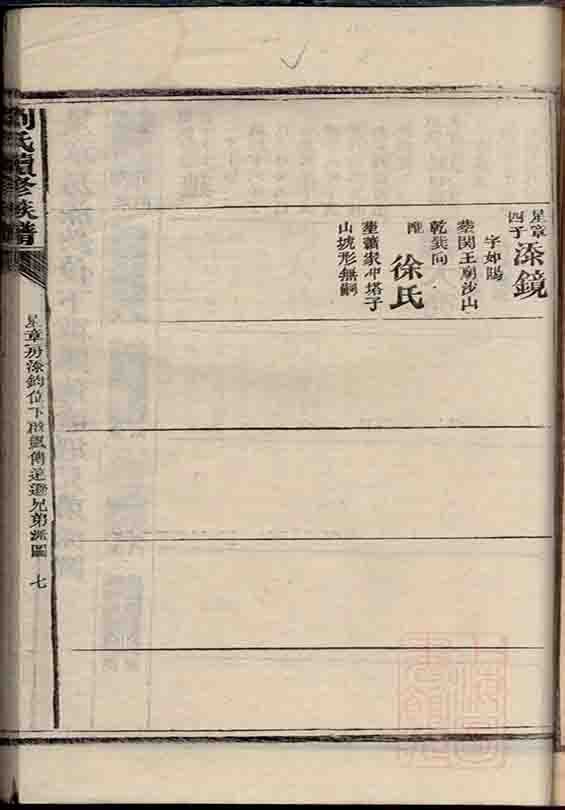 星章
四子
添鏡
字如陽
葬関王廟沙山
乾巽向
配
徐氏
葬蕭家冲塔子
山坡形無嗣
劉氏續修族譜
星章房添鈞位下
兄弟派圖
七